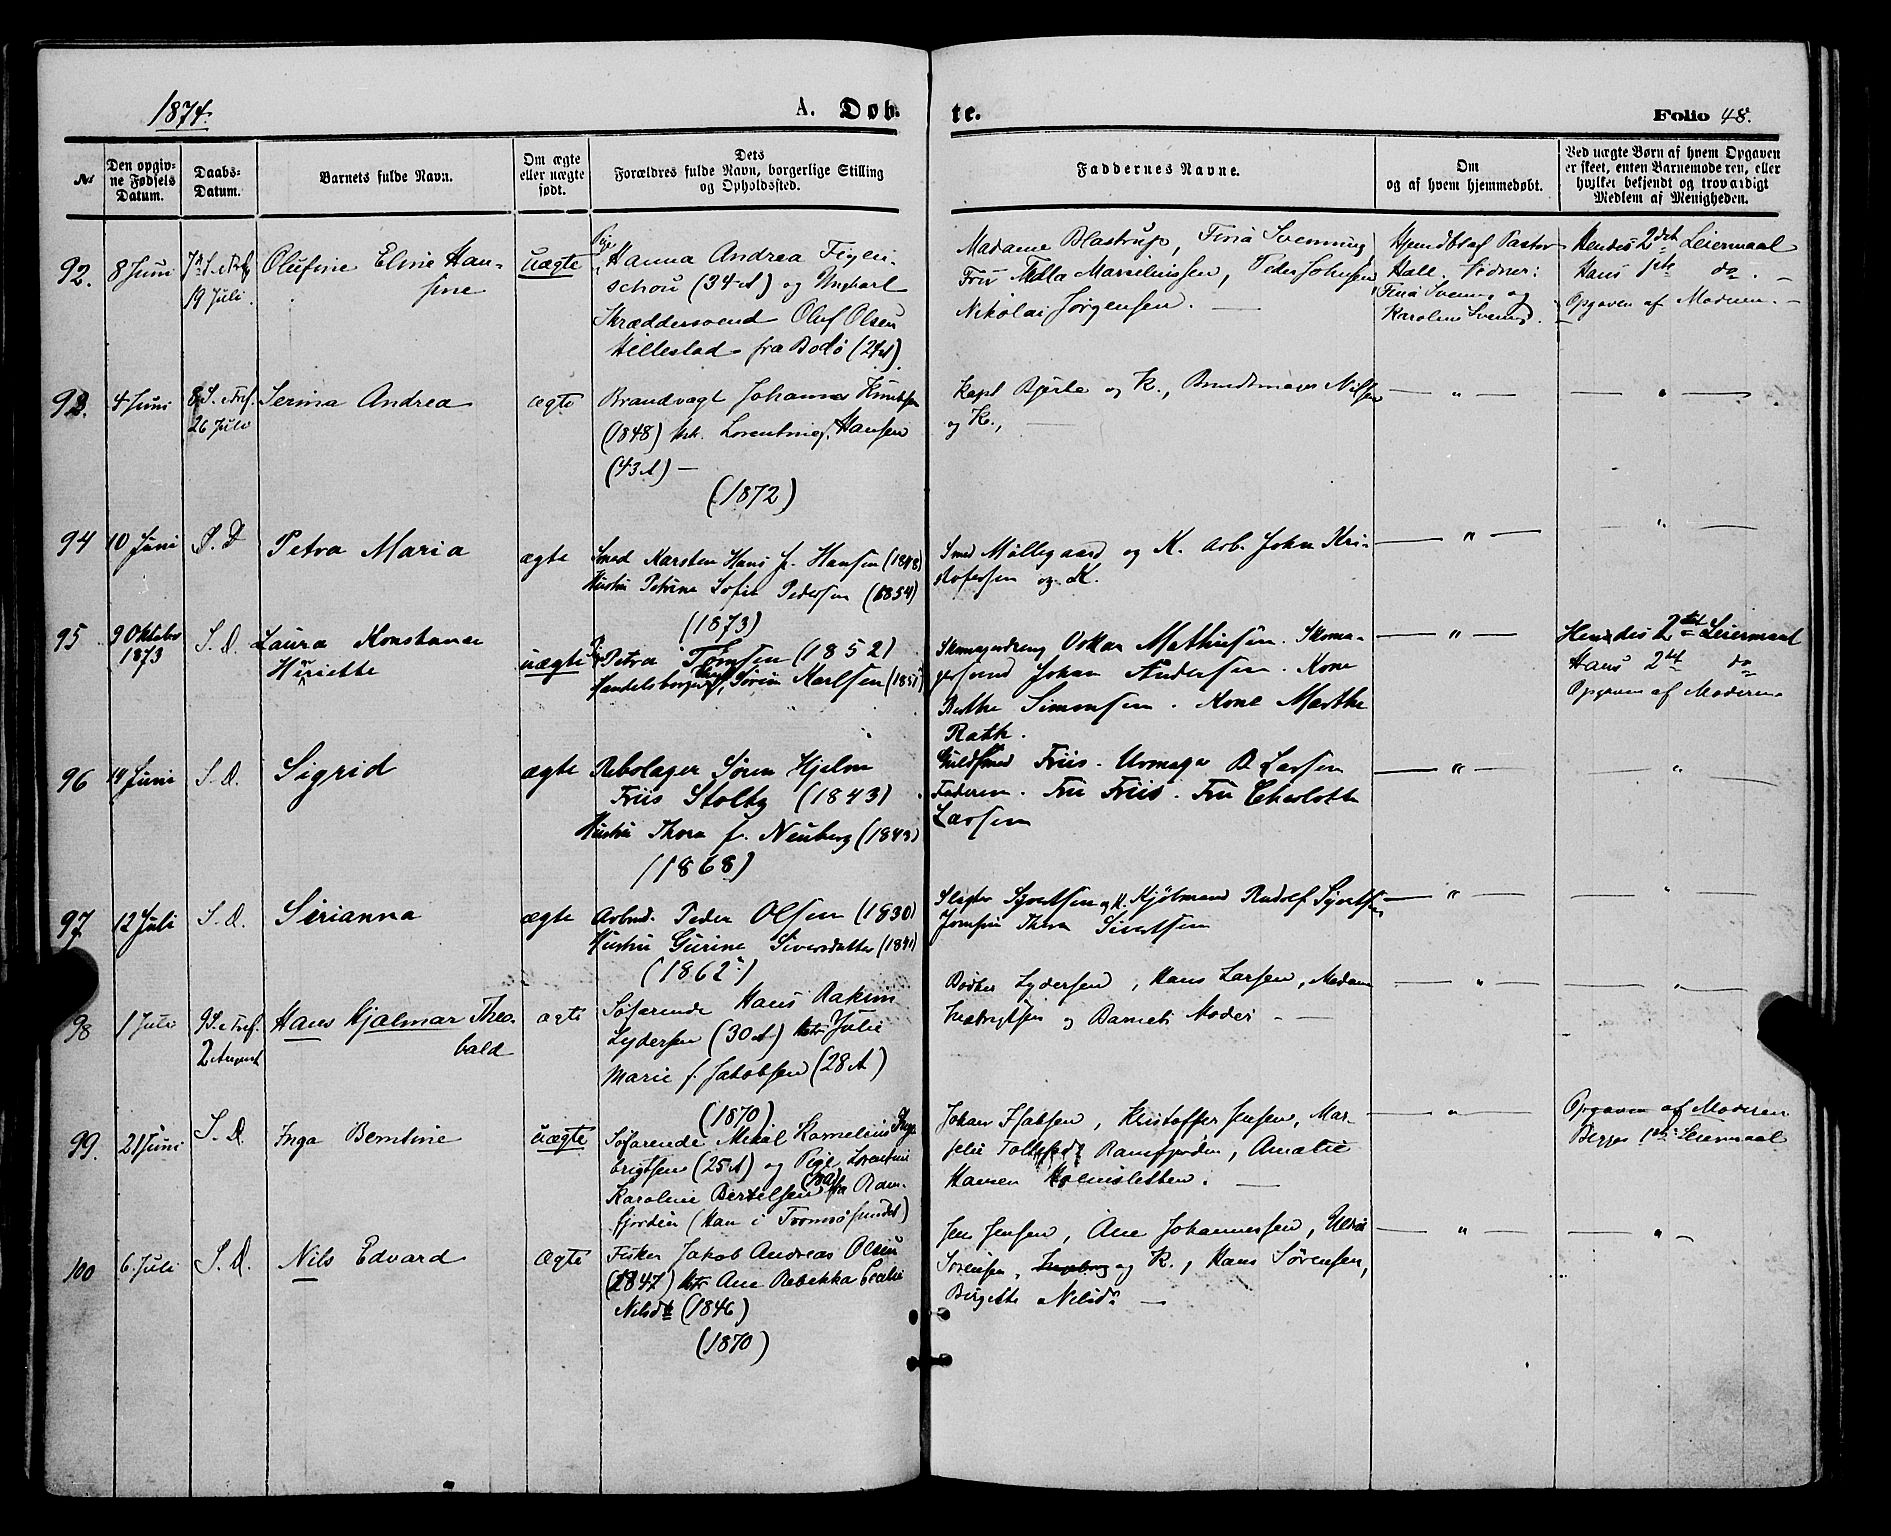 1874.
A. Døb-
te.
Folio 48.
№
Den opgiv-
ne Fødsels
Datum.
Daabs-
Datum.
Barnets fulde Navn.
Om ægte
eller uægte
født.
Dets
Forældres fulde Navn, borgerlige Stilling
og Opholdssted.
Faddernes Navne.
Om
og af hvem hjemmedøbt.
Ved uægte Børn af hvem Opgaven
er skeet, enten Barnemoderen, eller
hvilket bekjendt og troværdigt
Medlem af Menigheden.
92. 8 Juni 7de S. e Tref.
19 Juli.
Olufine Eline Han-
sine
uægte
Pige
Hanna Andrea Figen-
schou (34 A) og Ungkarl
Skræddersvend Oluf Olsen
Hillestad fra Bodö (24 A).
Madame Blastrup, Trina Svenning
Fru Thilla Marselinssen, Peder Johnsen
Nikolai Jørgensen. —
Hjemdøbt af Pastor
Hall. Vidner:
Svenn. og
Karoline Svenn.
Hendes 2det Leiermaal
Hans 1ste do. -
Opgaven af Moderen. -
93. 4 Juni 8 S. e Tref.
26 Juli
Serina Andrea
ægte
Brandvagt Johannes Knudsen
(1848) Hst. Lorentine f. Hansen
(43 A) —
(1872)
Kapt Bjerke og K., Nilsen
og K., —
— " —
— " —
94 10 Juni S. D
Petra Maria
ægte
Smed Karsten Hans P. Hansen (1848)
Hustru Petrine Sofie Pedersen (1854)
(1873)
Smed Möllegaard og K. Arb. John Kri-
stofersen og K.
— " —
— " —
95 9 Oktober
1873
S. D.
Laura Konstance
Henriette
uægte
Pige Petra Tomsen (1852)
Handelsborger Sörin Karlsen (1851)
Skomagerdreng Oskar Mathiesen. Skoma-
gersvend Johan Andersen. Kone
Berthe Simonsen. Kone Marthe
Rath.
— " —
Hendes 2det Leiermaal
Hans 2det do
Opgaven af Moderen.
96 14 Juni S. D.
Sigrid
ægte
Rebslager Sören Hjelm
Friis Stoltz (1843)
Hustru Thora f. Neuberg (1843)
(1868)
Guldsmed Friis. Urmager B Larsen
Faderen. Fru Friis. Fru Charlotte
Larsen
— " —
— " —
97. 12 Juli S. D.
Sirianna
ægte
Arbmd. Peder Olsen (1830)
Hustru Gurine Siversdatter (1841)
(1862)
Slagter Sjvertsen og K. Kjöbmand Rudolf Sjvertsen
Jomfru Thora Sivertsen
— " —
— " —
98 1 Juli 9 S. e Tref.
2 August
Hans Hjalmar Theo-
bald
ægte
Søfarende Hans Rakim
Lydersen (30 A) Hstr Julie
Marie f. Jakobsen (28 A)
(1870)
Bødker Lydersen, Hans Larsen, Madam
og Barnets Moder —
— " —
— " —
99. 21 Juni S. D.
Inga Berntine
uægte
Søfarende Mikal Kornelius Inge-
brigtsen (25 A) og Pige Lorentine
Karoline Bertelsen fra Ram-
fjorden (Han i Tromsösundet)
Johan Isaksen, Kristoffer Jensen, Mar-
selie Tollefsen Ramfjorden, Amalie
Hansen Holmesletten. —
— " —
Opgaven af Moderen
Begges 1ste Leiermaal
100 6. Juli S. D.
Nils Edvard
Ægte
Fisker Jakob Andreas Olsen
(1847) Hstr Ane Rebekka Cecilie
Nilsdt (1846)
(1870)
Jens Jensen, Ane Johannessen,
Sørensen, Ingeborg og K., Hans Sørensen,
Birgitte Nilsdr —
— " —
— " —